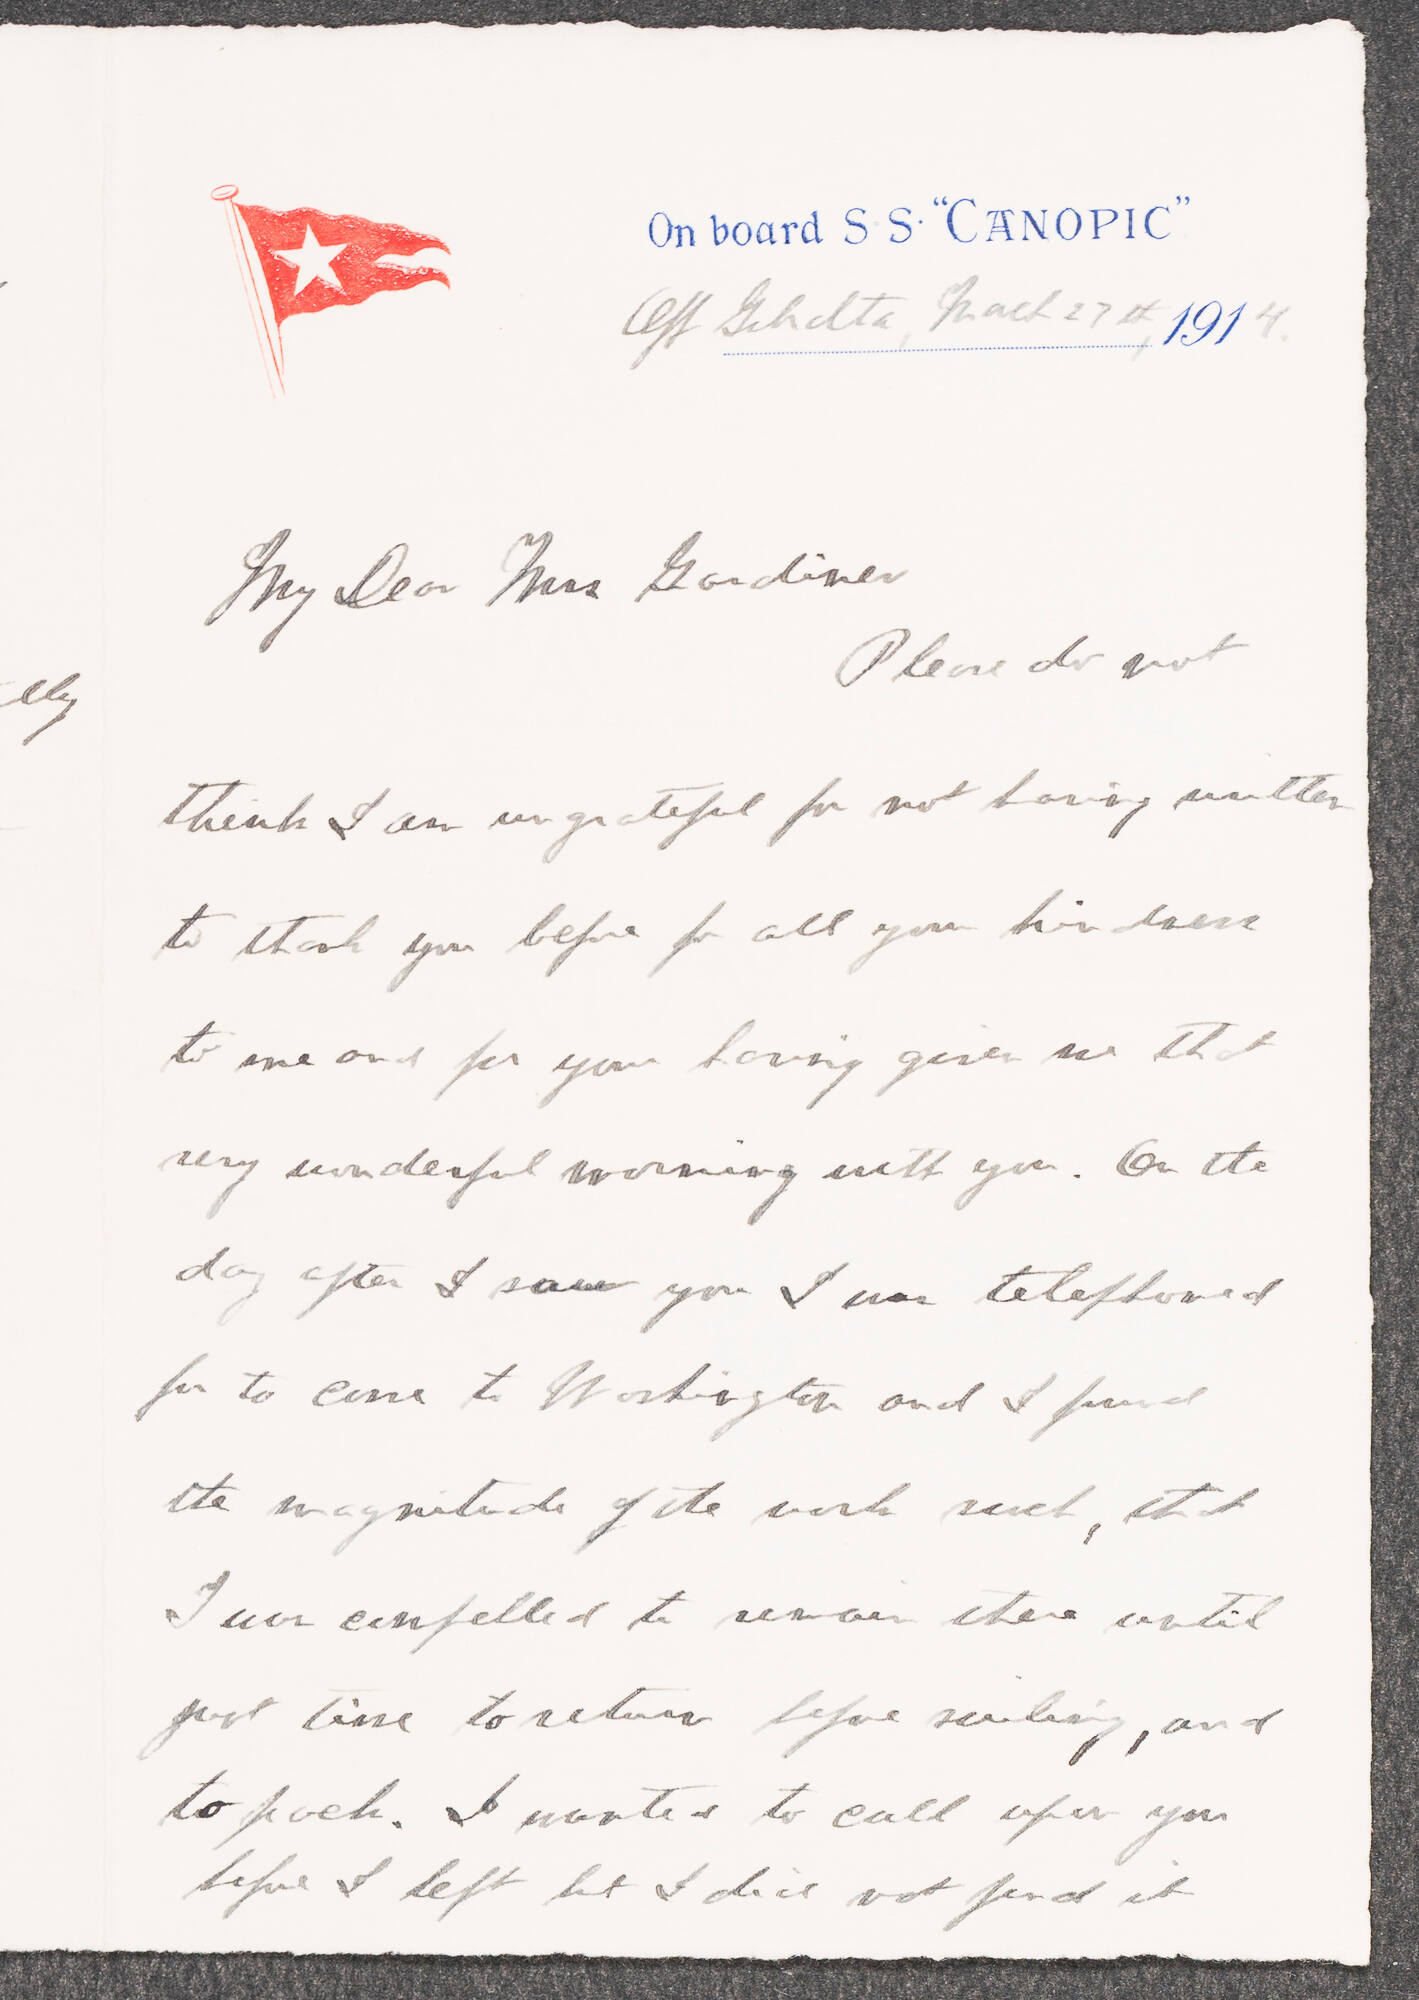 On board S.S. "CANOPIC"
Off Gibralta, March 27th, 1914.
My Dear Mrs Gardiner
Please do not
lly
think I am ungrateful for not having written
to thank you before for all your kindness
to me and for your having given me that
very wonderful morning with you. On the
day after I saw you I was telephoned
for to come to Washington and I found
the magnitude of the work such, that
I was compelled to remain there until
just time to return before sailing, and
to pack. I wanted to call upon you
before I left but I did not find it